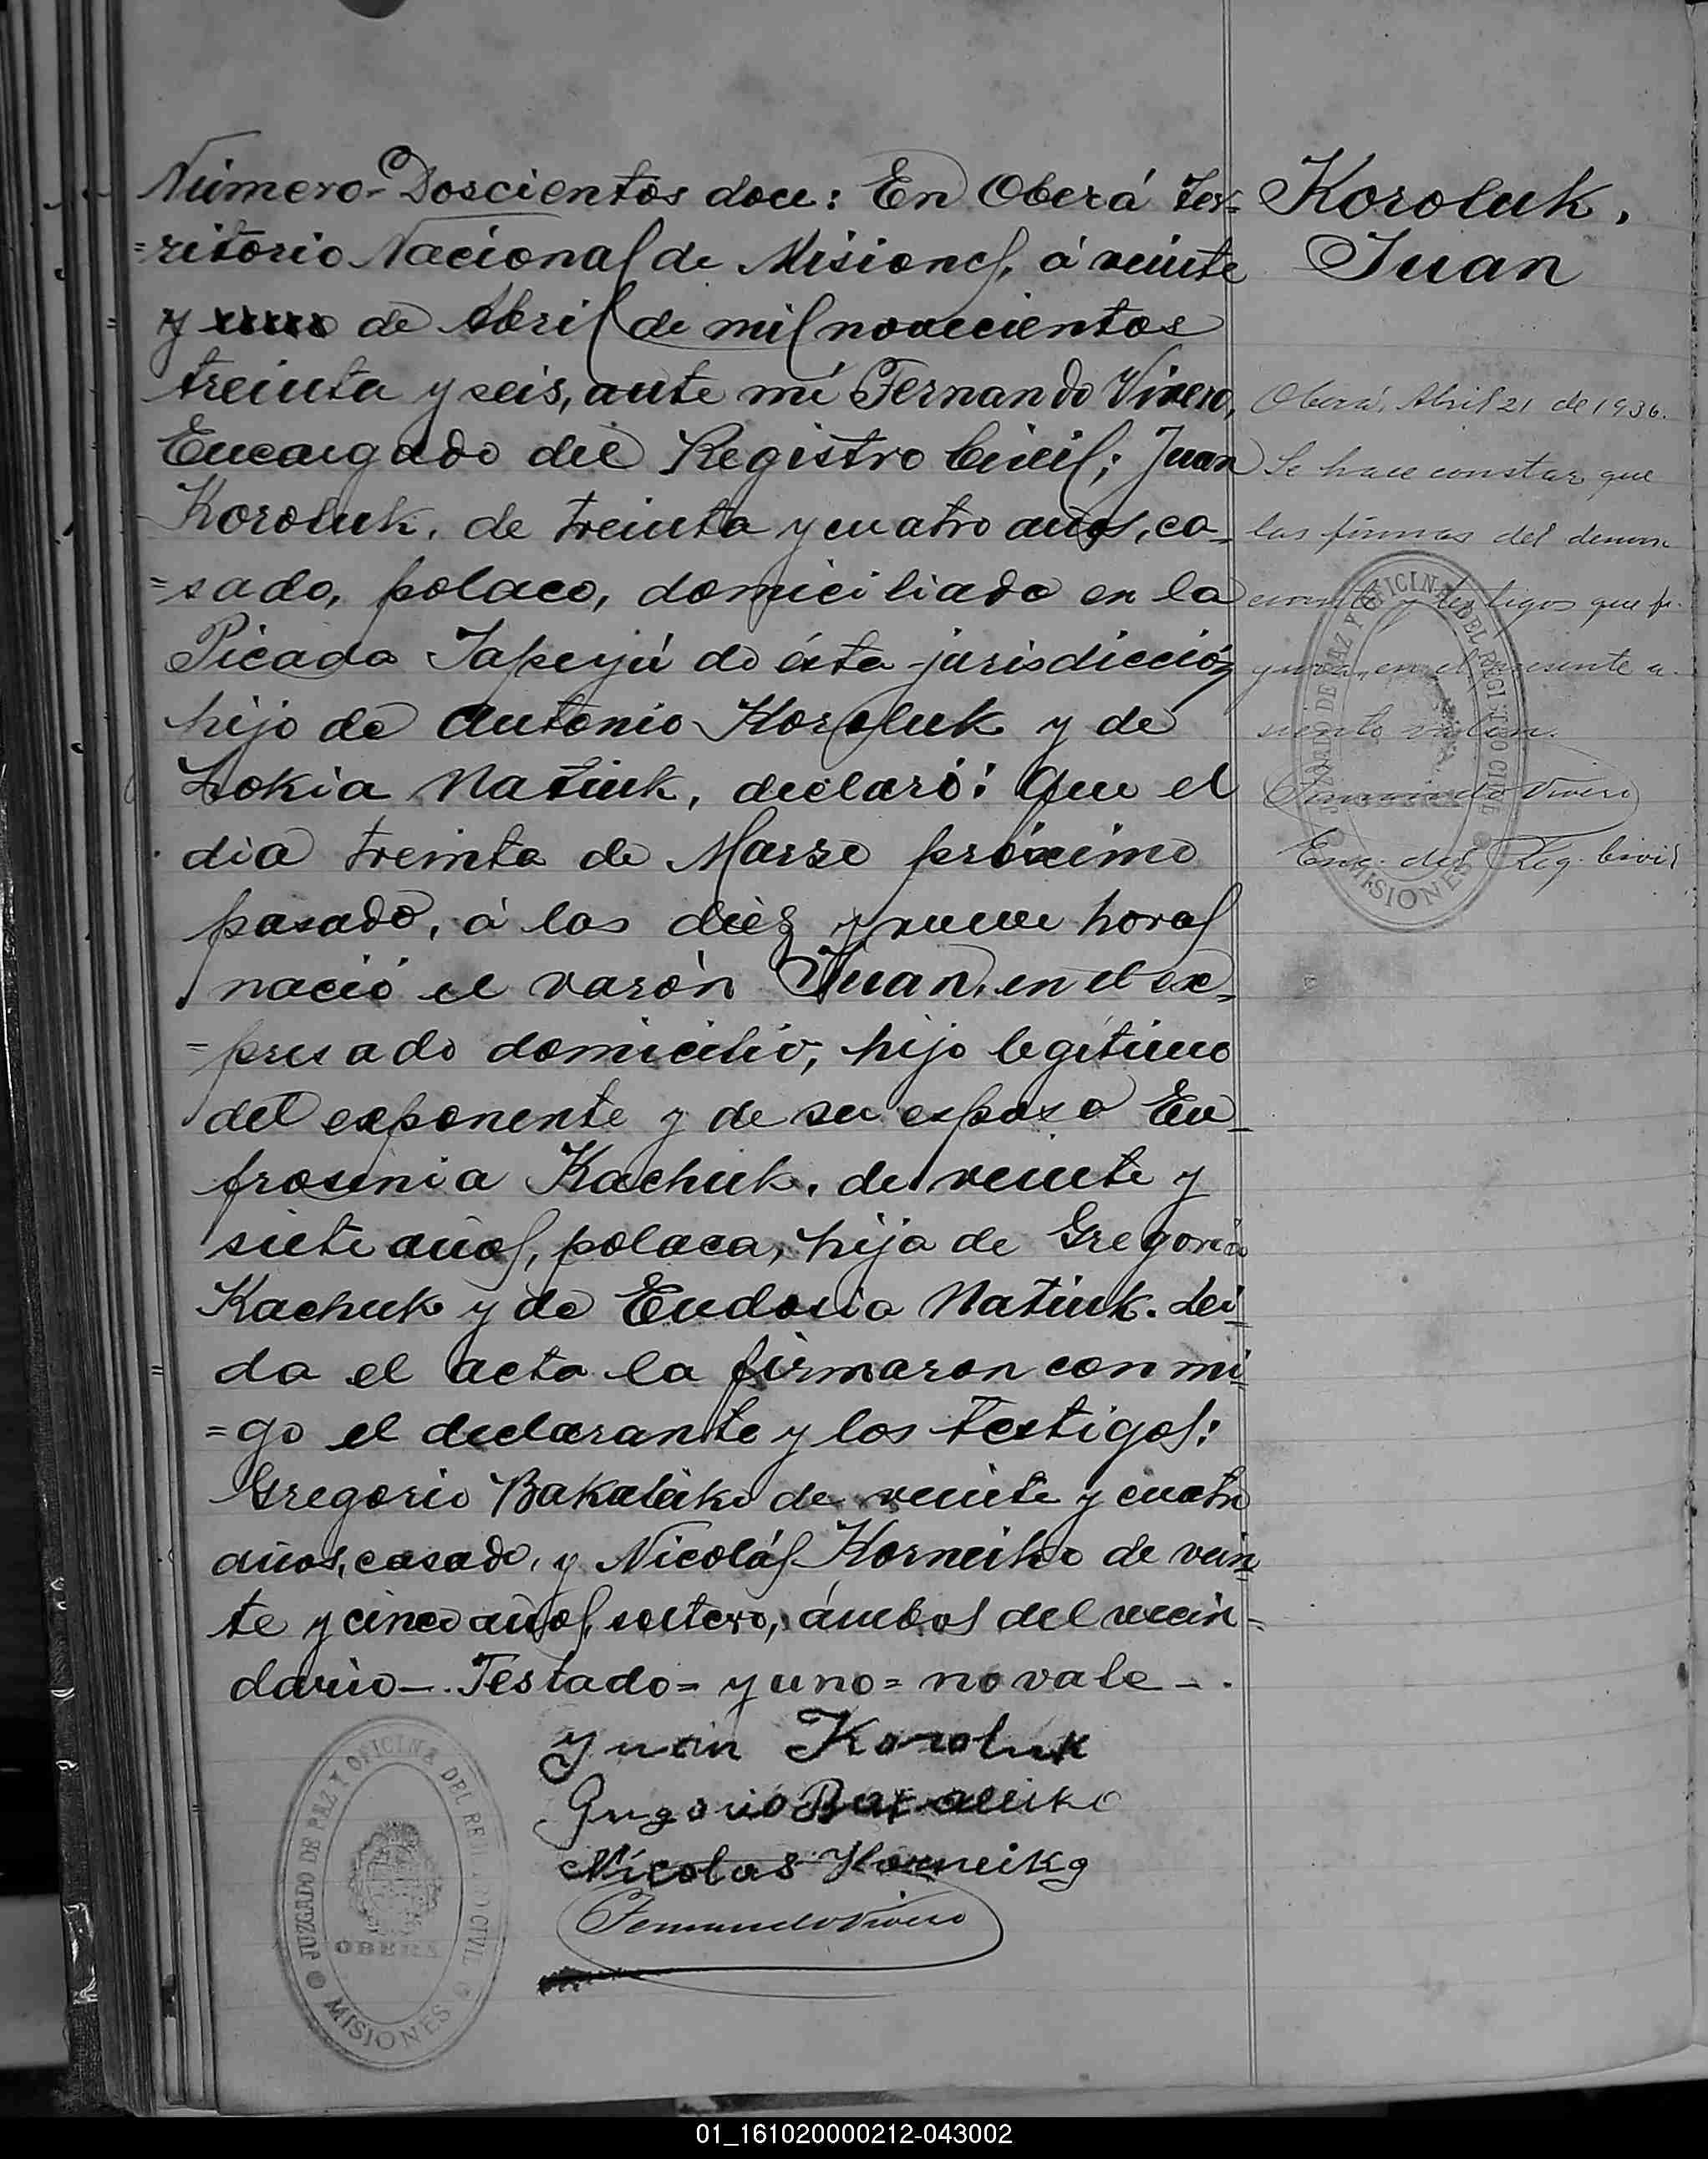 Número Doscientos doce: En Oberá Ter-
=ritorio Nacional de Misiones, á veinte
y xxxxx de Abril de mil novecientos
treinta y seis, ante mí Fernando Vivero,
Encargado del Registro Civil; Juan
Koroluk, de treinta y cuatro años, ca-
=sado, polaco, domiciliado en la
Picada Yapeyú de ésta jurisdicción
hijo de Antonio Koroluk y de
Lokia Natiuk, declaró: Que el
dia treinta de Marzo próximo
pasado, á las diez y nueve horas
nació el varón Juan, en el ex-
=presado domicilio, hijo legítimo
del exponente y de su esposa Eu-
frosinia Kachuk, de veinte y
siete años, polaca, hija de Gregorio
Kachuk y de Eudosia Natiuk. Lei-
da el acta la firmaron con mi-
=go el declarante y los testigos:
Gregorio Bakaleiko de veinte y cuatro
años, casado, y Nicolás Korneiko de vein-
te y cinco años, soltero, ámbos del vecin-
dario—. Testado= y uno= no vale—.
Juan Koroluk
Gregorio Bakaleiko
Nicolas Korneiko
Fernando Vivero
JUZGADO DE PAZ Y OFICINA DEL REGISTRO CIVIL
OBERÁ
MISIONES
Koroluk,
Juan
Oberá, Abril 21 de 1936.
Se hace constar que
las firmas del denun-
ciante y testigos que fi-
guran en el presente a-
siento valen.
Fernando Vivero
Enc. del Reg. Civil
JUZGADO DE PAZ Y OFICINA DEL REGISTRO CIVIL
MISIONES
01_161020000212-043002